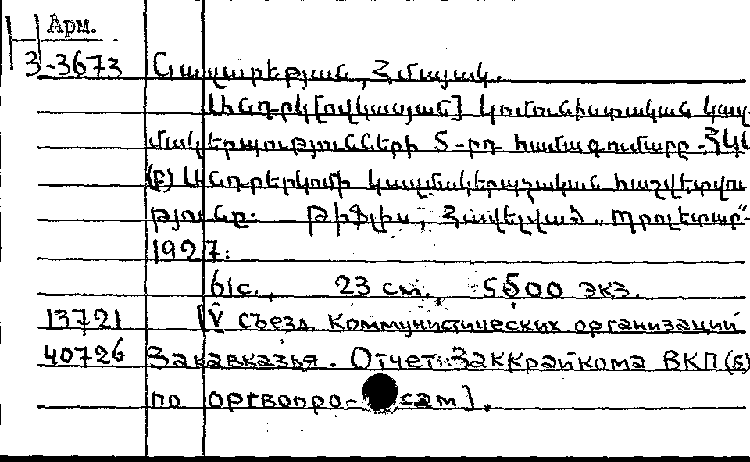 Арм.
3-3673 Նազարեթյան, Հմայակ.
Անդրկ[ովկասյան] կոմունիստական կազ
մակերպությունների 5-րդ համագումարը. ՀԿԿ
(բ) Անդրերկոմի կազմակերպչական հաշվետվու
թյունը. Թիֆլիս, Հավելված „Պրոլետար"-
1927:
61с., 23 см., 5500 экз.
13721 [V съезд коммунистических организаций
40726 Закавказья. Отчет Заккрайкома ВКП(б)
по оргвопро- сам].